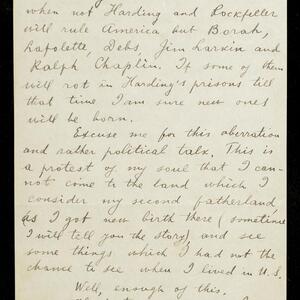 when not Harding and Rockfeller
will rule America but Borah,
Lafolette, Debs, Jim Larkin and
Ralph Chaplin. If some of them
will rot in Harding's prisons till
that time I am sure new ones
will be born.
Excuse me for this aberration
and rather political talk. This is
a protest of my soul that I can-
not come to the land which I
consider my second fatherland,
as I got new birth there (sometime
I will tell you the story) and see
some things which I had not the
chance to see when I lived in U.S.
Well, enough of this.